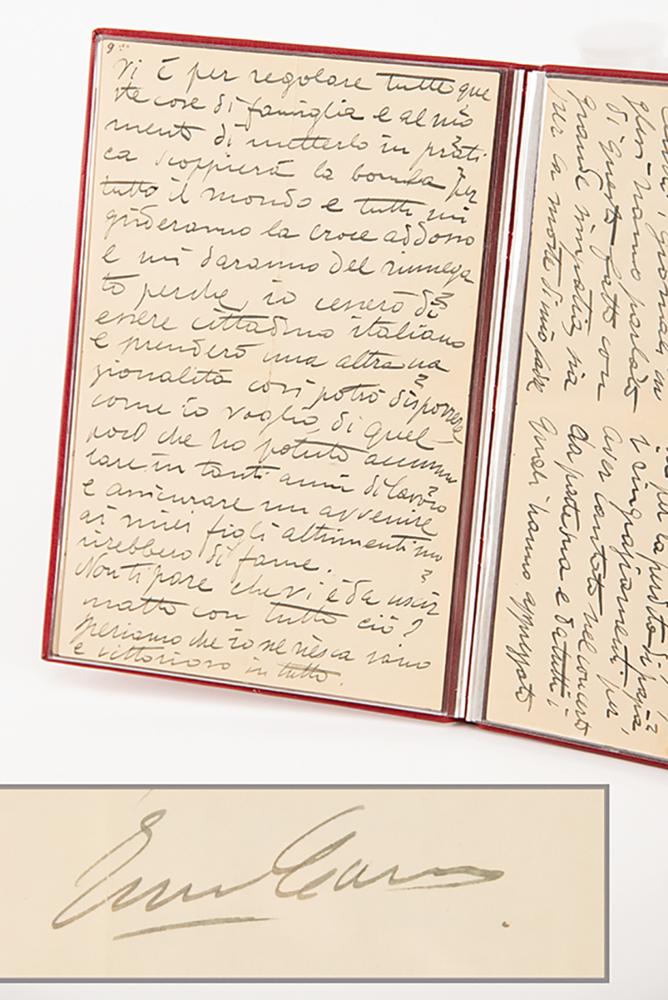 9
vi è per regolare tutte que
ste cose di famiglia e al mo
mento di metterlo in prati
ca scoppierà la bomba per
tutto il mondo e tutti mi
grideranno la croce addosso
e mi daranno del rinnega
to perche, io cesserò di
essere cittadino italiano
e prenderò una altra na
zionalità così potrò disporre
come io voglio, di quel
poco che ho potuto accumu
lare in tanti anni di lavoro
e assicurare un avvenire
ai miei figli altrimenti mo
rirebbero di fame.
Non ti pare che vi è da uscir
matto con tutto ciò?
Speriamo che io ne riesca sano
e vittorioso in tutto.
per la morte di mio padre
grande simpatia sia
di questo fatto con
hanno parlato
la perdita di papà,
i ringraziamenti per
aver cantato nel concerto
da parte sua e da tutti i
quali hanno apprezzato